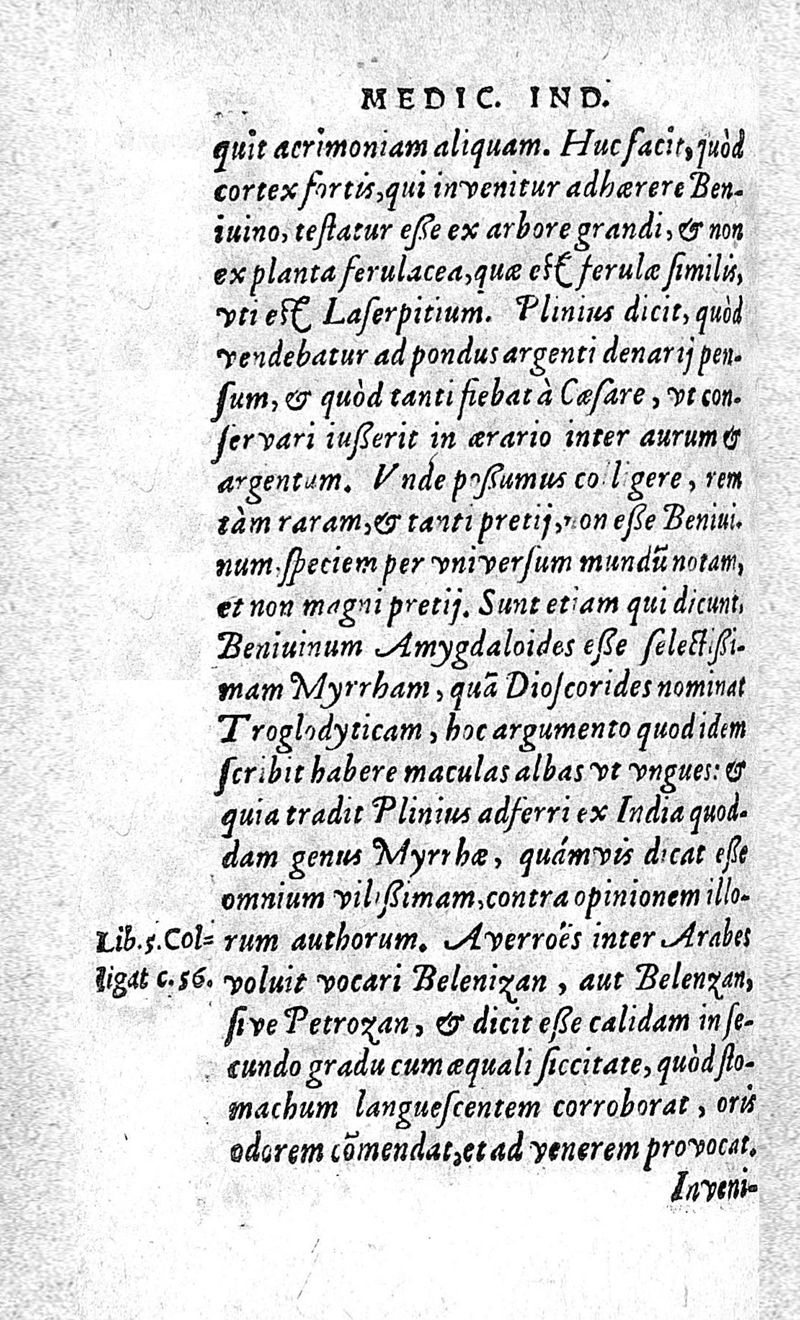 MEDIC. IND.
quit acrimoniam aliquam. Huc facit, quòd
cortex fortis, qui invenitur adhærere Ben-
iuino, teſtatur eſſe ex arbore grandi, & non
ex planta ferulacea, quæ eſt ferulæ ſimilis,
vti eſt Laſerpitium. Plinius dicit, quòd
vendebatur ad pondus argenti denarij pen-
ſum, & quòd tanti fiebat à Cæſare, vt con-
ſervari iuſſerit in ærario inter aurum &
argentum. Vnde poſſumus colligere, rem
tàm raram, & tanti pretij, non eſſe Beniui-
num, ſpeciem per vniverſum mundũ notam,
et non magni pretij. Sunt etiam qui dicunt,
Beniuinum Amygdaloides eſſe ſelectiſſi-
mam Myrrham, quã Dioſcorides nominat
Troglodyticam, hoc argumento quod idem
ſcribit habere maculas albas vt vngues: &
quia tradit Plinius adferri ex India quod-
dam genus Myrrhæ, quámvis dicat eſſe
omnium viliſſimam, contra opinionem illo-
Lib. 5. Col= rum authorum. Averroës inter Arabes
ligat c. 56. voluit vocari Belenizan, aut Belenzan,
ſive Petrozan, & dicit eſſe calidam in ſe-
cundo gradu cum æquali ſiccitate, quòd ſto-
machum langueſcentem corroborat, oris
odorem cõmendat, et ad venerem provocat.
Inveni-